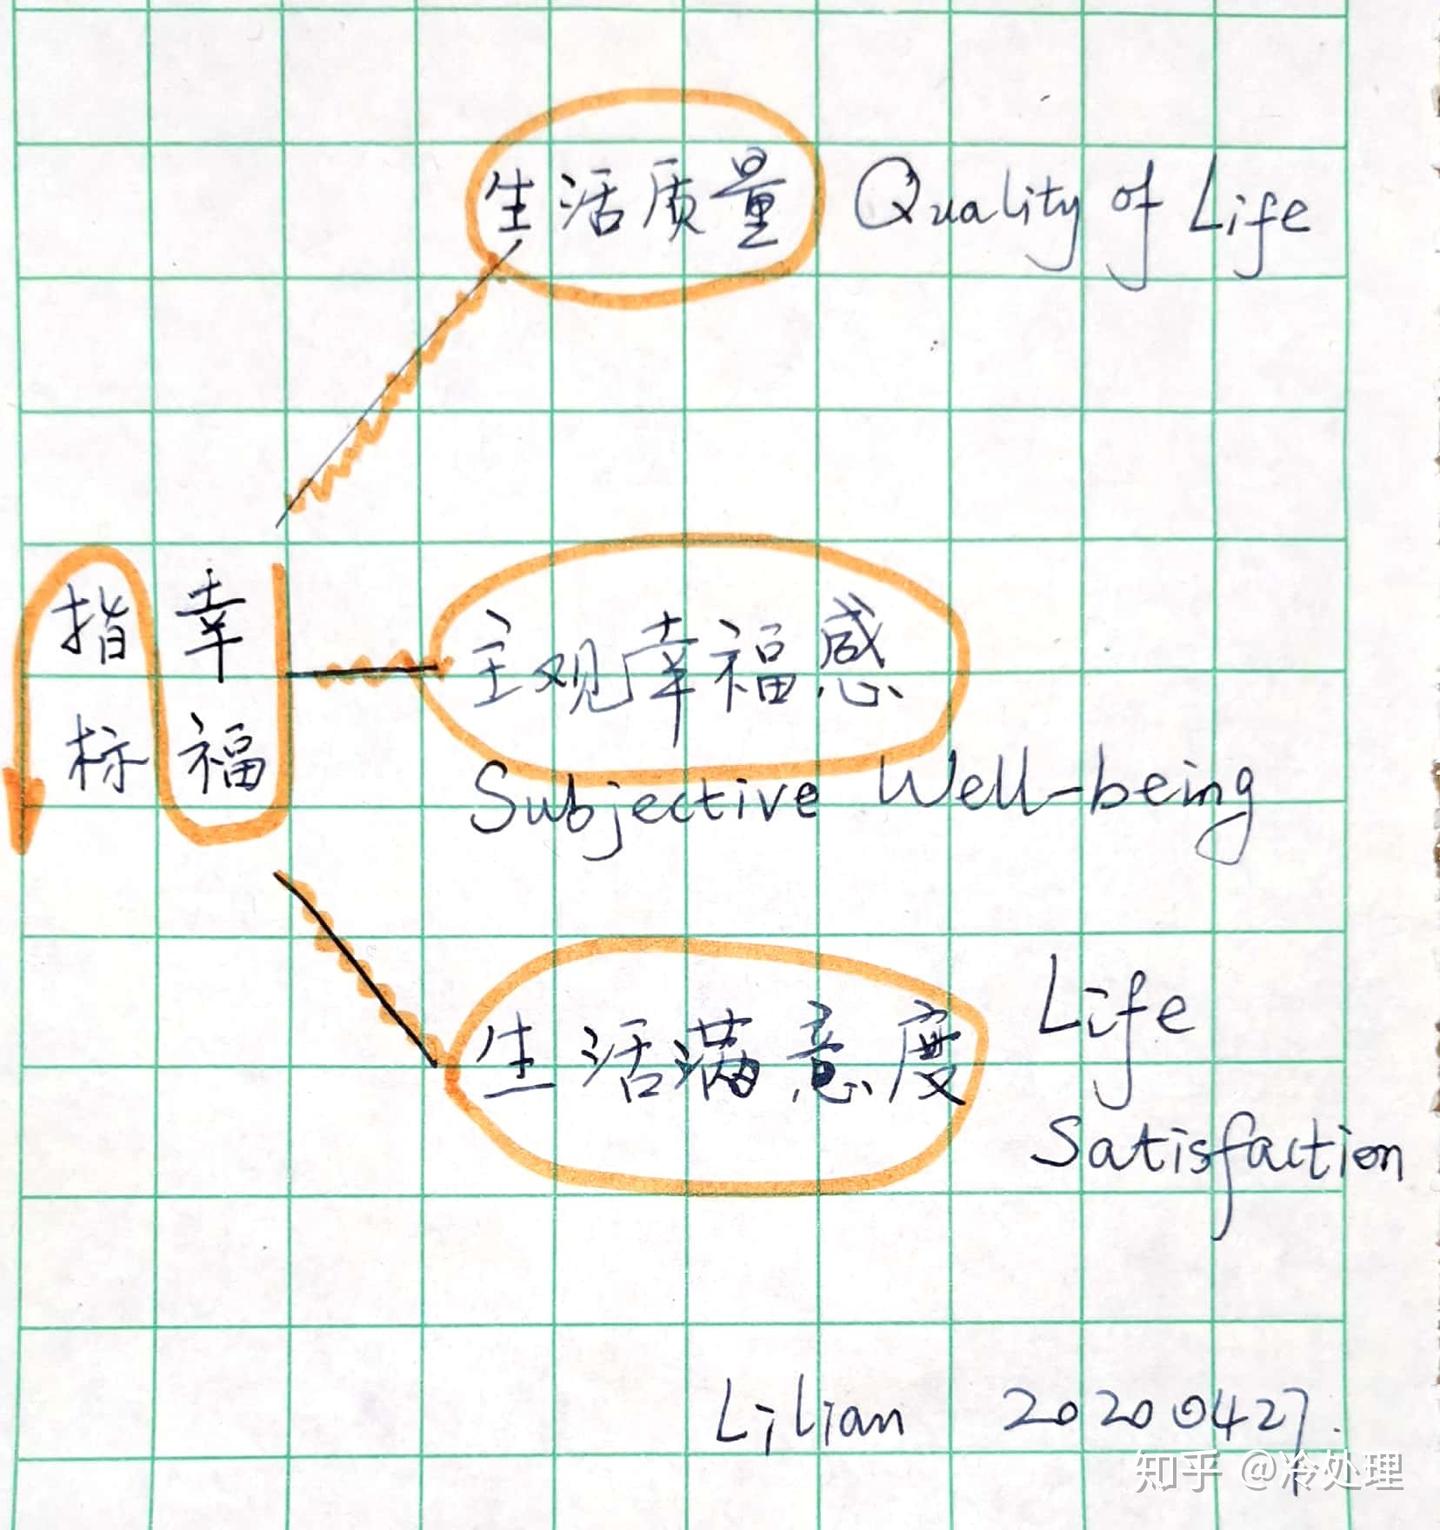 生活质量 Quality of Life
幸福
指标
主观幸福感
Subjective Well-being
生活满意度 Life
Satisfaction
Lilian 20200427.
知乎 @冷处理